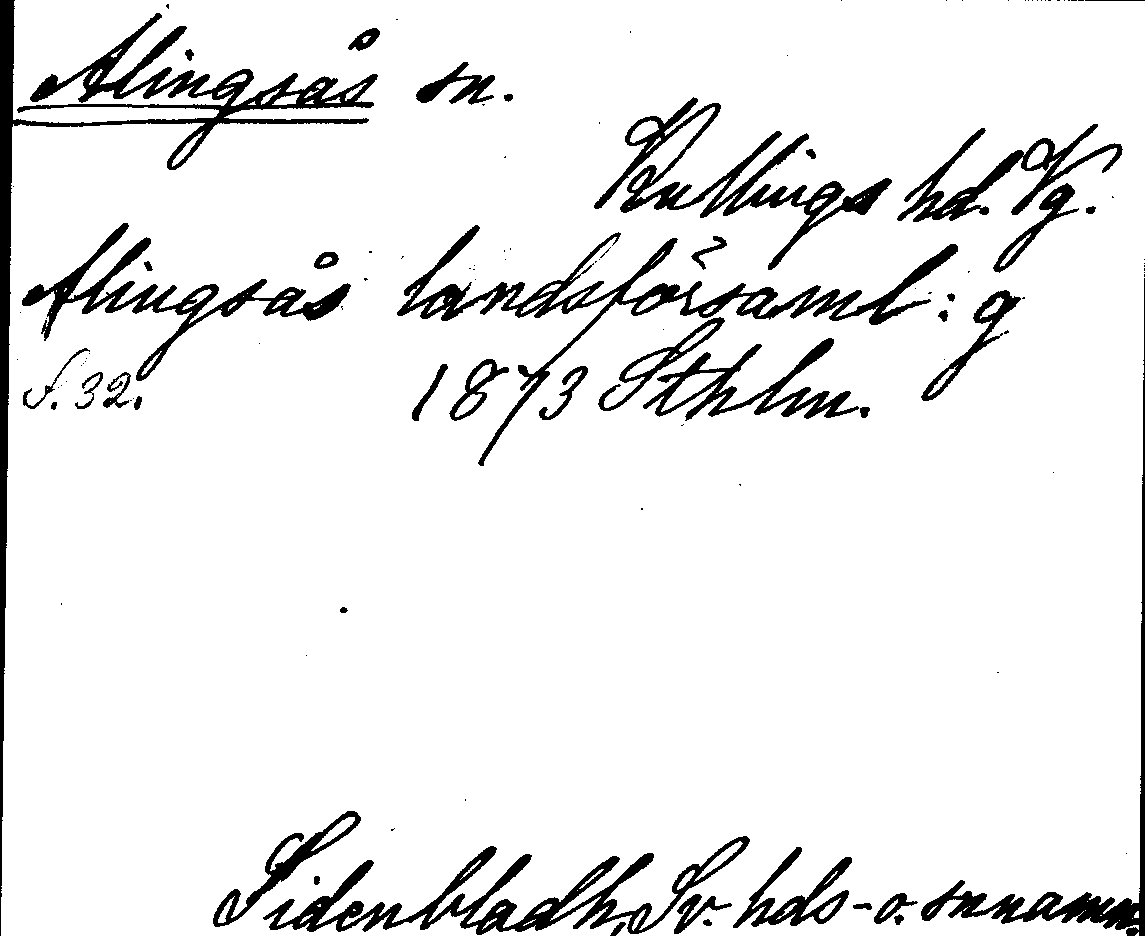 Alingsås sn.
Kullings hd. Vg.
Alingsås landsförsaml:g
S. 32. 1873 Sthlm.
Sidenbladh, Sv. hds- o. snnamn.